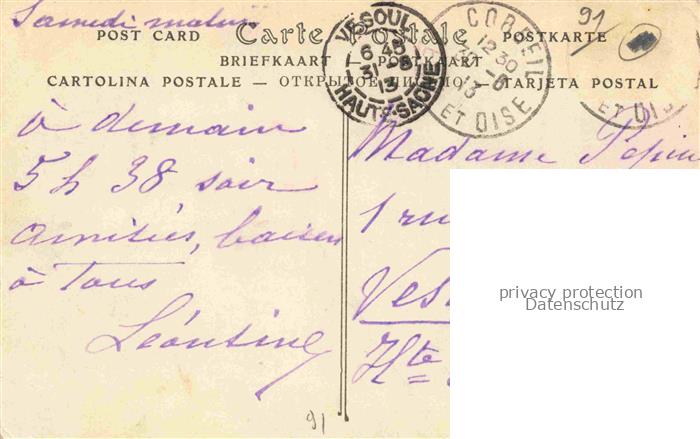 Samedi matin
91
POST CARD Carte Postale POSTKARTE
BRIEFKAART — POSTKAART
CARTOLINA POSTALE — ОТКРЫТОЕ ПИСЬМО — TARJETA POSTAL
VESOUL
6 45
31 -8
13
HAUTE-SAÔNE
CORBEIL
12 30
13
ET OISE
ET OISE
à demain
5 h 38 soir
amitiés, baisers
à Tous
Léontine
Madame Pépin
1 ru
Ves
Hte
privacy protection
Datenschutz
91